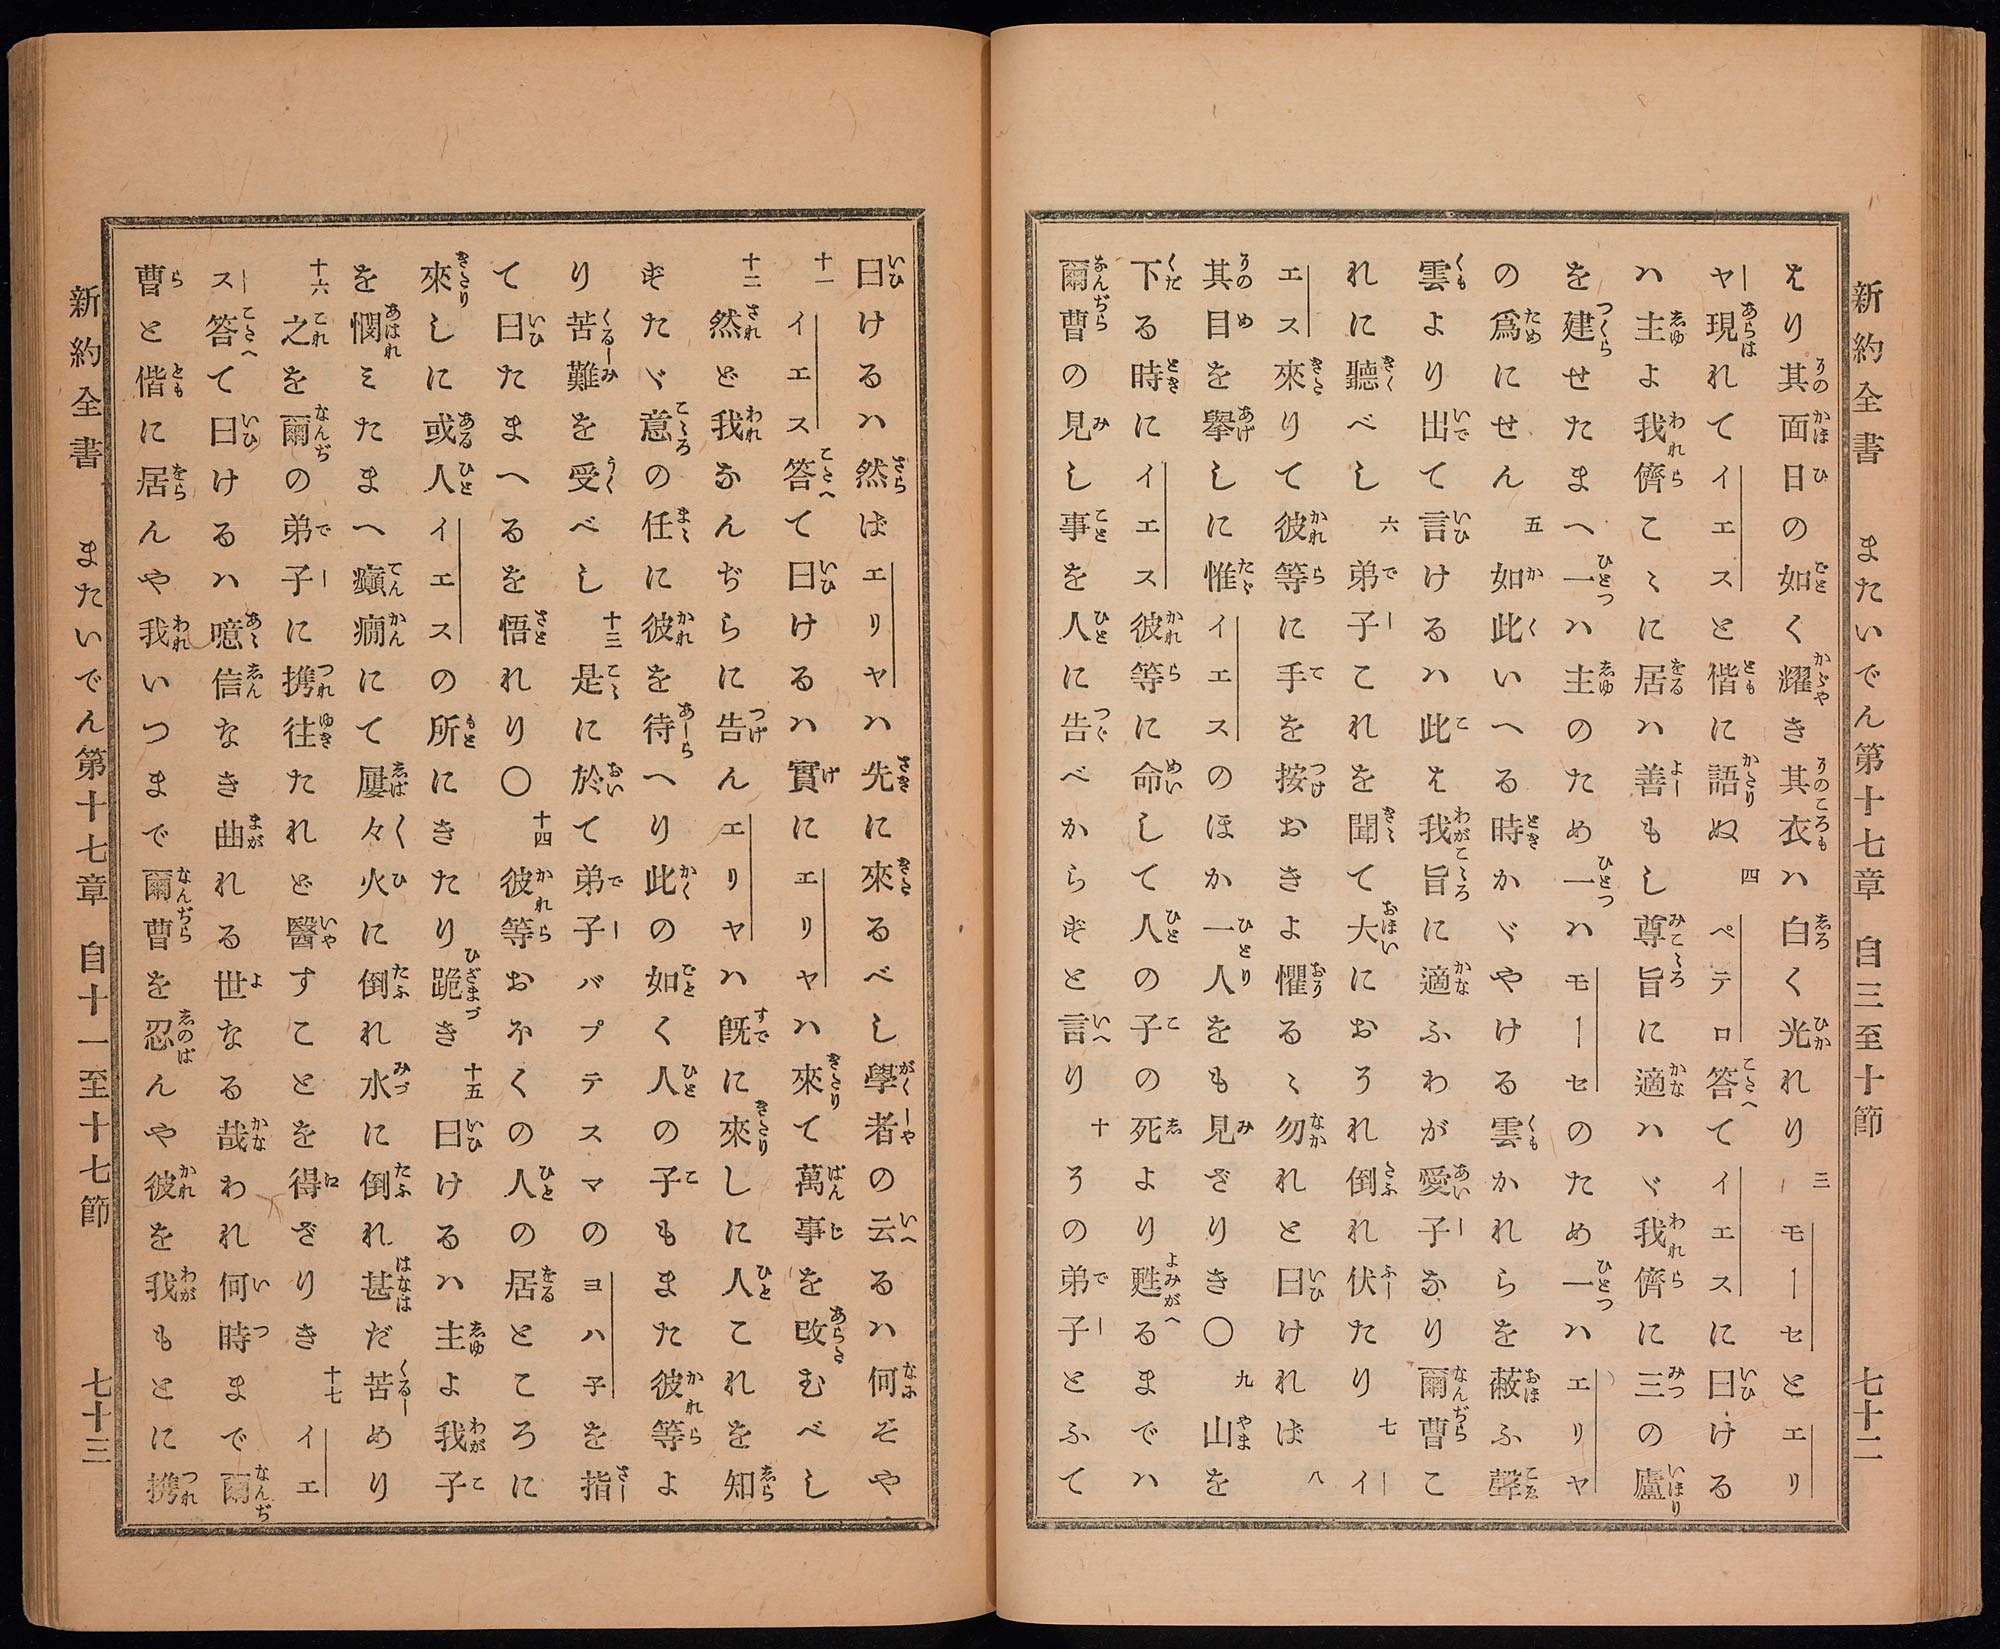 新約全書 またいでん第十七章 自三至十節 七十二
えり其面日の如く耀き其衣ハ白く光れり 三 モーセとエリ
ヤ現れてイエスと偕に語りぬ 四 ペテロ答てイエスに曰ける
ハ主よ我儕こゝに居ハ善もし尊旨に適ハヾ我儕に三の廬
を建せたまへ一ハ主のため一ハモーセのため一ハエリヤ
の爲にせん 五 如此いへる時かヾやける雲かれらを蔽ふ聲
雲より出て言けるハ此え我旨に適ふわが愛子なり爾曹こ
れに聽べし 六 弟子これを聞て大におそれ倒れ伏たり 七 イ
エス來りて彼等に手を按おきよ懼るゝ勿れと曰ければ 八
其目を擧しに惟イエスのほか一人をも見ざりき〇 九 山を
下る時にイエス彼等に命して人の子の死より甦るまでハ
爾曹の見し事を人に告べからずと言り 十 その弟子とふて
曰けるハ然ばエリヤハ先に來るべし學者の云るハ何ぞや
十一 イエス答て曰けるハ實にエリヤハ來て萬事を改むべし
十二 然ど我なんぢらに告んエリヤハ旣に來しに人これを知
ずたヾ意の任に彼を待へり此の如く人の子もまた彼等よ
り苦難を受べし 十三 是に於て弟子バプテスマのヨハ子を指
て曰たまへるを悟れり〇 十四 彼等おほくの人の居ところに
來しに或人イエスの所にきたり跪き 十五 曰けるハ主よ我子
を憫みたまへ癲癇にて屢々火に倒れ水に倒れ甚だ苦めり
十六 之を爾の弟子に携往たれど醫すことを得ざりき 十七 イエ
ス答て曰けるハ噫信なき曲れる世なる哉われ何時まで爾
曹と偕に居んや我いつまで爾曹を忍んや彼を我もとに携
新約全書 またいでん第十七章 自十一至十七節 七十三